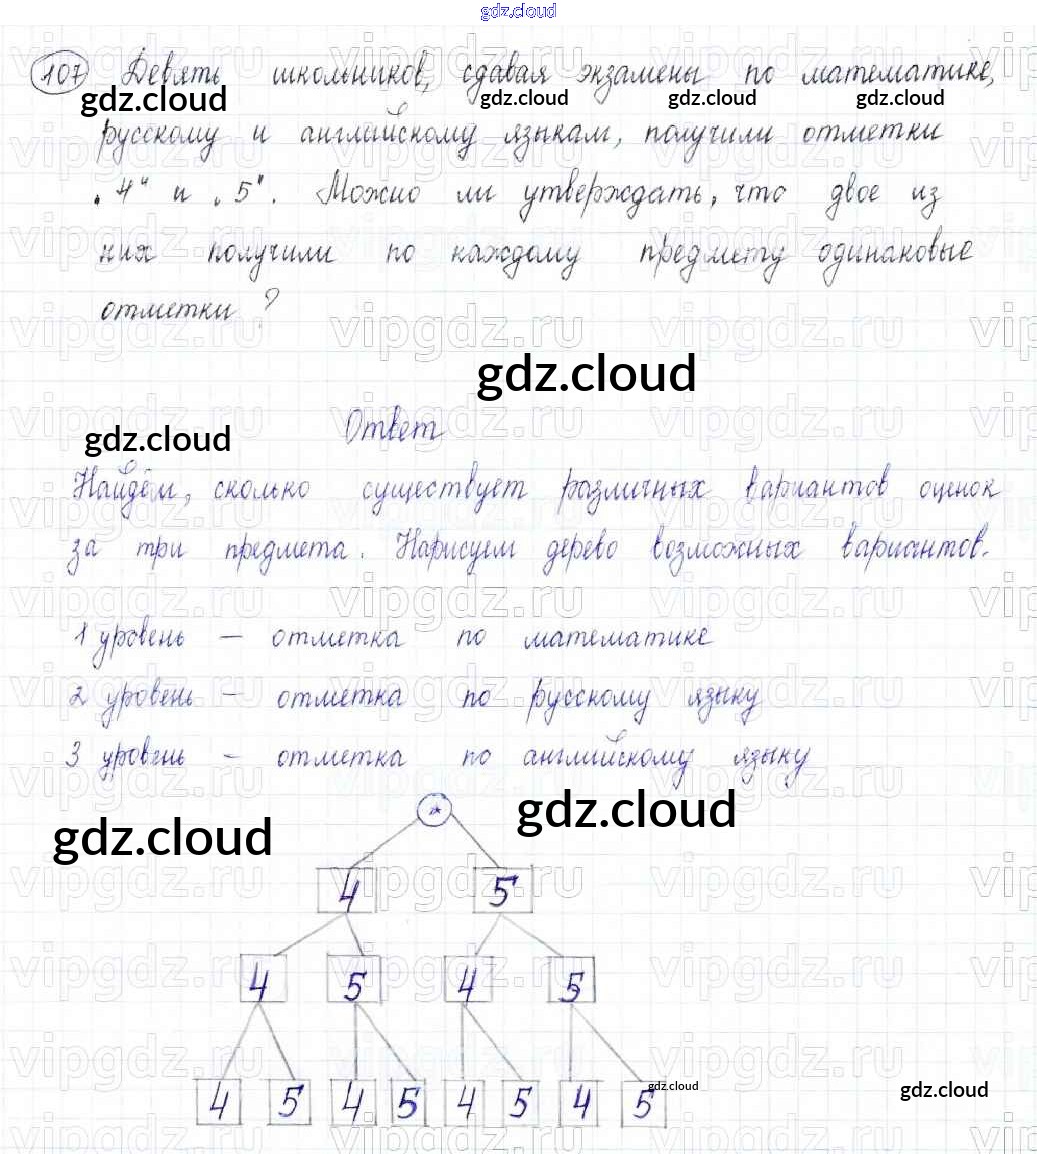 gdz.cloud
107 Девять школьников, сдавая экзамены по математике,
gdz.cloud gdz.cloud gdz.cloud gdz.cloud
русскому и английскому языкам, получили отметки
„4" и „5". Можно ли утверждать, что двое из
них получили по каждому предмету одинаковые
отметки?
vipgdz.ru vipgdz.ru vipgdz.ru
gdz.cloud
Ответ
gdz.cloud
Найдём, сколько существует различных вариантов оценок
за три предмета. Нарисуем дерево возможных вариантов.
vipgdz.ru vipgdz.ru vipgdz.ru
1 уровень – отметка по математике
2 уровень – отметка по русскому языку
3 уровень – отметка по английскому языку
gdz.cloud gdz.cloud
*
4 5
4 5 4 5
4 5 4 5 4 5 4 5
gdz.cloud gdz.cloud